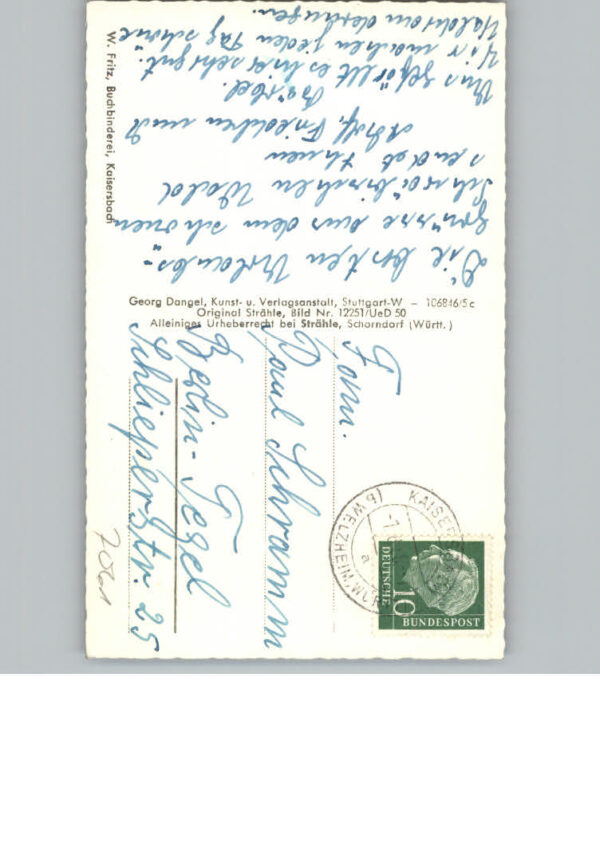 Die besten Urlaubs-
grüsse aus dem schönen
Schwäbischen Wald
sendet Ihnen
Adolf, Friedchen und
Bärbel.
Uns gefällt es hier sehr gut.
Wir machen jeden Tag schöne
Waldwanderungen.
W. Fritz, Buchbinderei, Kaisersbach
Georg Dangel, Kunst- u. Verlagsanstalt, Stuttgart-W – 106846/5c
Original Strähle, Bild Nr. 12251/UeD 50
Alleiniges Urheberrecht bei Strähle, Schorndorf (Württ.)
Fam.
Paul Schramm
Berlin-Tegel
Schlieperstr. 25
DEUTSCHE
BUNDESPOST
10